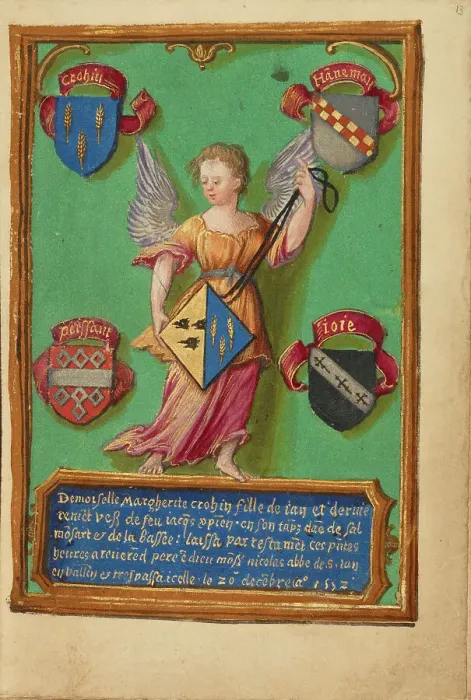 13
Crohin
Hānemay
peissant
ioie
Demoiselle Margherite crohin fille de ian et dernie
de feu iacqs en son tāps de sal
mōsart et de la bassee: laissa par testamēt ces pntes
heures a reverēd pere ē dieu mōsr nicolas abbe de s. ian
en vallēn et trespassa icelle le 20 decēbre 1552